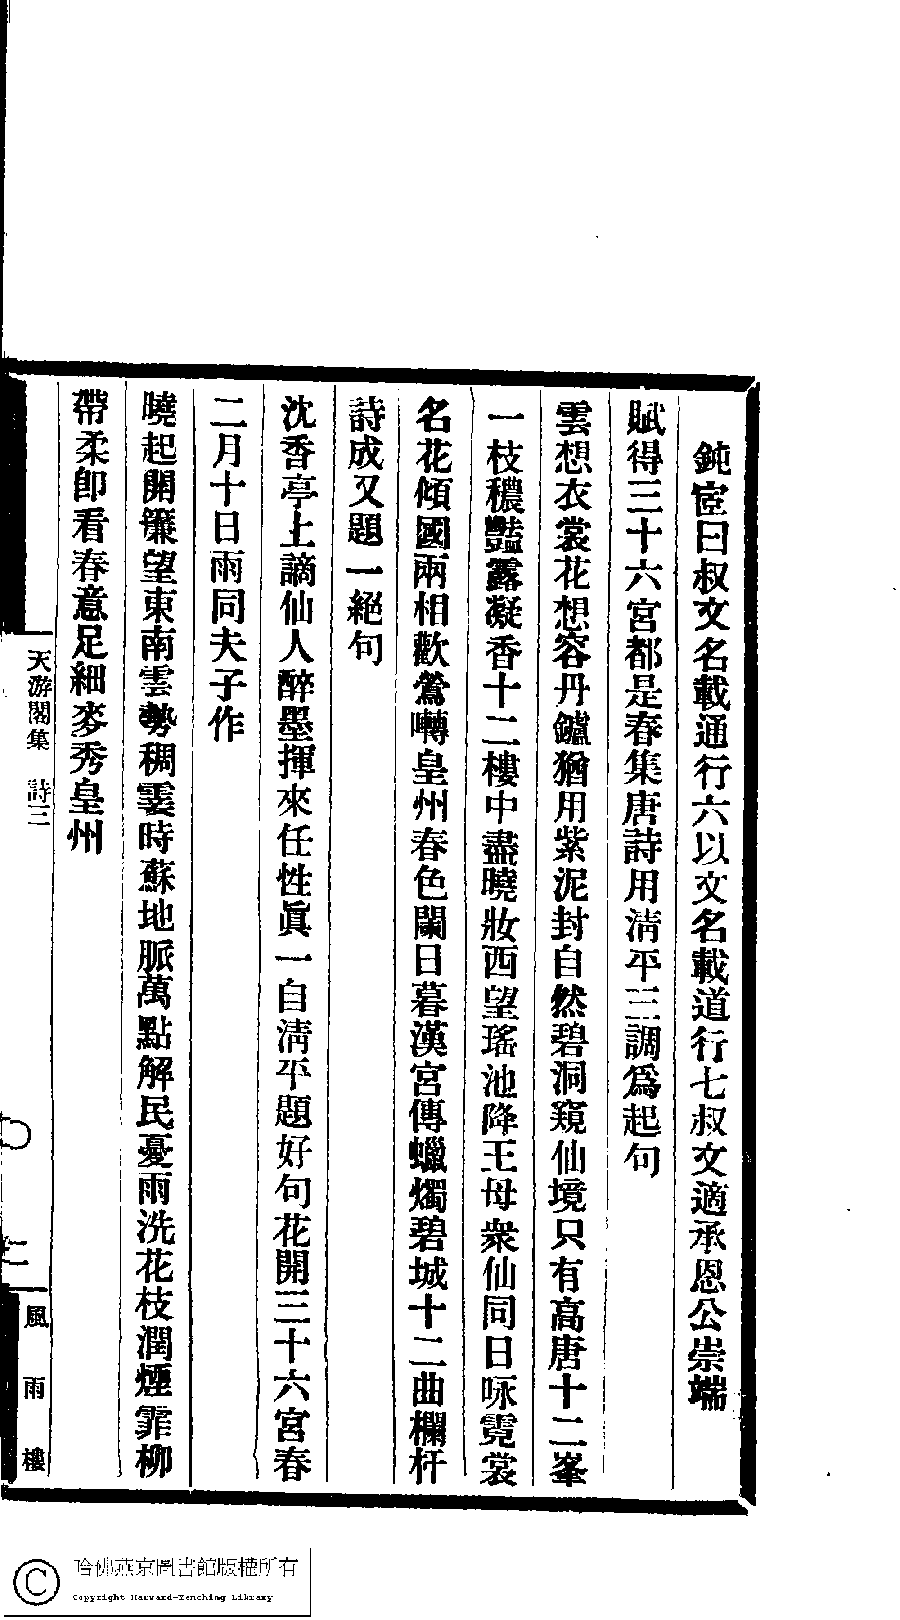 鈍宧曰叔文名載通行六以文名載道行七叔文適承恩公崇端
賦得三十六宮都是春集唐詩用淸平三調爲起句
雲想衣裳花想容丹鑪猶用紫泥封自然碧洞窺仙境只有高唐十二峯
一枝穠豔露凝香十二樓中盡曉妝西望瑤池降王母衆仙同日咏霓裳
名花傾國兩相歡鶯囀皇州春色闌日暮漢宮傳蠟燭碧城十二曲欄杆
詩成又題一絕句
沈香亭上謫仙人醉墨揮來任性眞一自淸平題好句花開三十六宮春
二月十日雨同夫子作
曉起開簾望東南雲勢稠霎時蘇地脈萬點解民憂雨洗花枝潤煙霏柳
帶柔卽看春意足細麥秀皇州
天游閣集 詩三
二
風雨樓
哈佛燕京圖書館版權所有
Copyright Harvard-Yenching Library